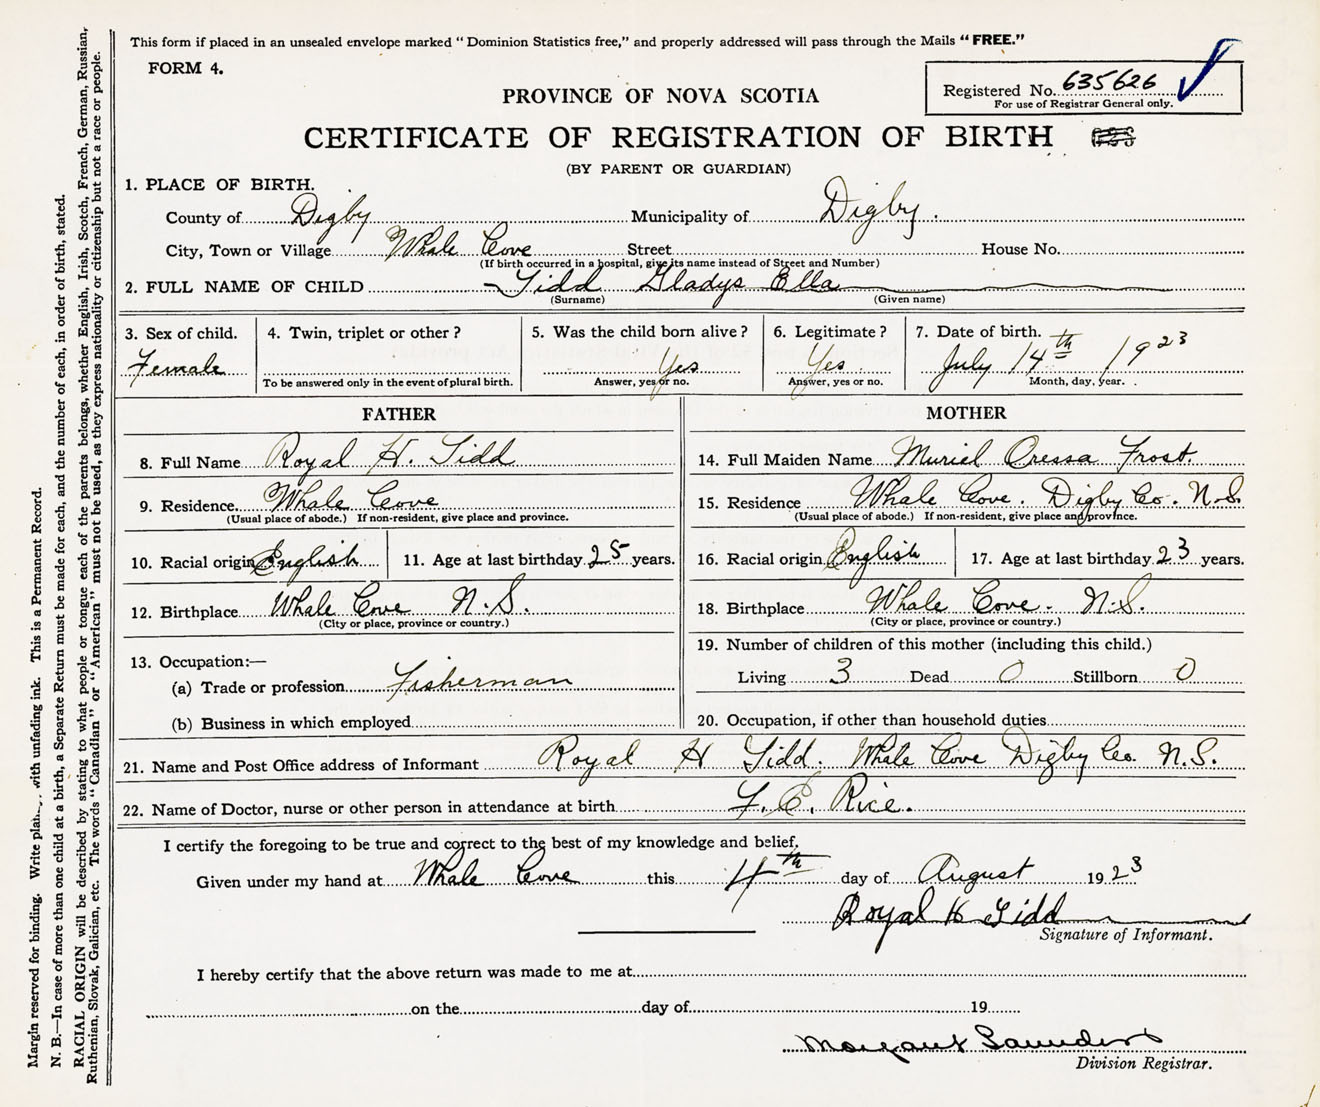 This form if placed in an unsealed envelope marked "Dominion Statistics free," and properly addressed will pass through the Mails "FREE."
FORM 4.
Registered No. 635626
For use of Registrar General only.
PROVINCE OF NOVA SCOTIA
CERTIFICATE OF REGISTRATION OF BIRTH
(BY PARENT OR GUARDIAN)
1. PLACE OF BIRTH.
County of Digby Municipality of Digby.
City, Town or Village Whale Cove Street House No.
(If birth occurred in a hospital, give its name instead of Street and Number)
2. FULL NAME OF CHILD Tidd Gladys Ella
(Surname) (Given name)
3. Sex of child. 4. Twin, triplet or other? 5. Was the child born alive? 6. Legitimate? 7. Date of birth.
Female Yes Yes July 14th 1923
To be answered only in the event of plural birth. Answer, yes or no. Answer, yes or no. Month, day, year.
FATHER MOTHER
8. Full Name Royal H. Tidd 14. Full Maiden Name Muriel Cressa Frost.
9. Residence Whale Cove 15. Residence Whale Cove. Digby Co. N.S.
(Usual place of abode.) If non-resident, give place and province. (Usual place of abode.) If non-resident, give place and province.
10. Racial origin English 11. Age at last birthday 25 years. 16. Racial origin English 17. Age at last birthday 23 years.
12. Birthplace Whale Cove N.S. 18. Birthplace Whale Cove. N.S.
(City or place, province or country.) (City or place, province or country.)
19. Number of children of this mother (including this child.)
13. Occupation:—
Living 3 Dead 0 Stillborn 0
(a) Trade or profession Fisherman
(b) Business in which employed 20. Occupation, if other than household duties
21. Name and Post Office address of Informant Royal H Tidd. Whale Cove Digby Co. N.S.
22. Name of Doctor, nurse or other person in attendance at birth F. E. Rice.
I certify the foregoing to be true and correct to the best of my knowledge and belief.
Given under my hand at Whale Cove this 4th day of August 1923
Royal H Tidd
Signature of Informant.
I hereby certify that the above return was made to me at
on the day of 19
Margaret Saunders
Division Registrar.
Margin reserved for binding. Write with unfading ink. This is a Permanent Record.
N. B.—In case of more than one child at a birth, a Separate Return must be made for each, and the number of each, in order of birth, stated.
RACIAL ORIGIN will be described by stating to what people or tongue each of the parents belongs, whether English, Irish, Scotch, French, German, Russian,
Ruthenian, Slovak, Galician, etc. The words "Canadian" or "American" must not be used, as they express nationality or citizenship but not a race or people.